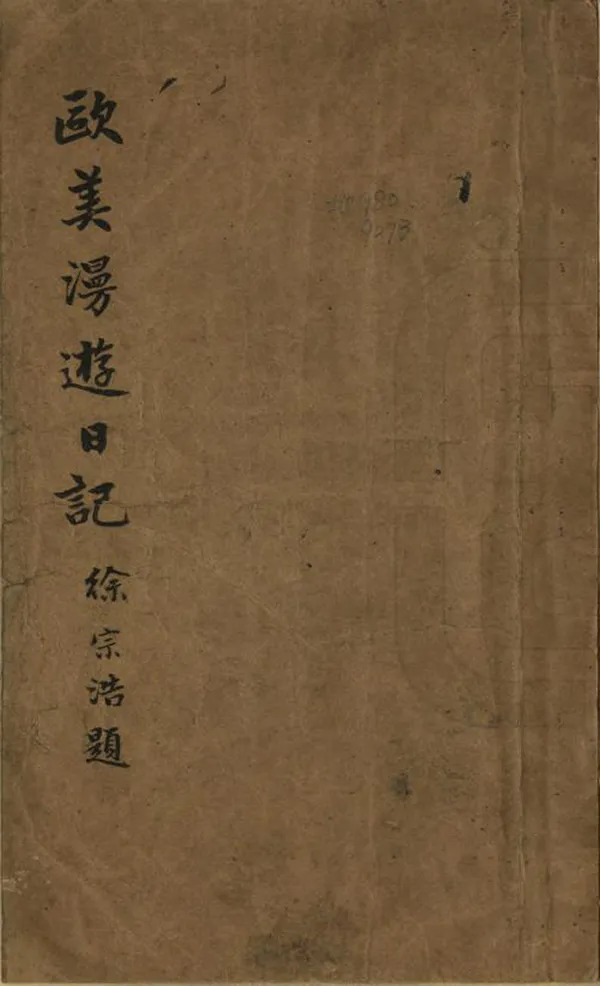 歐美漫遊日記
徐宗浩題
9073